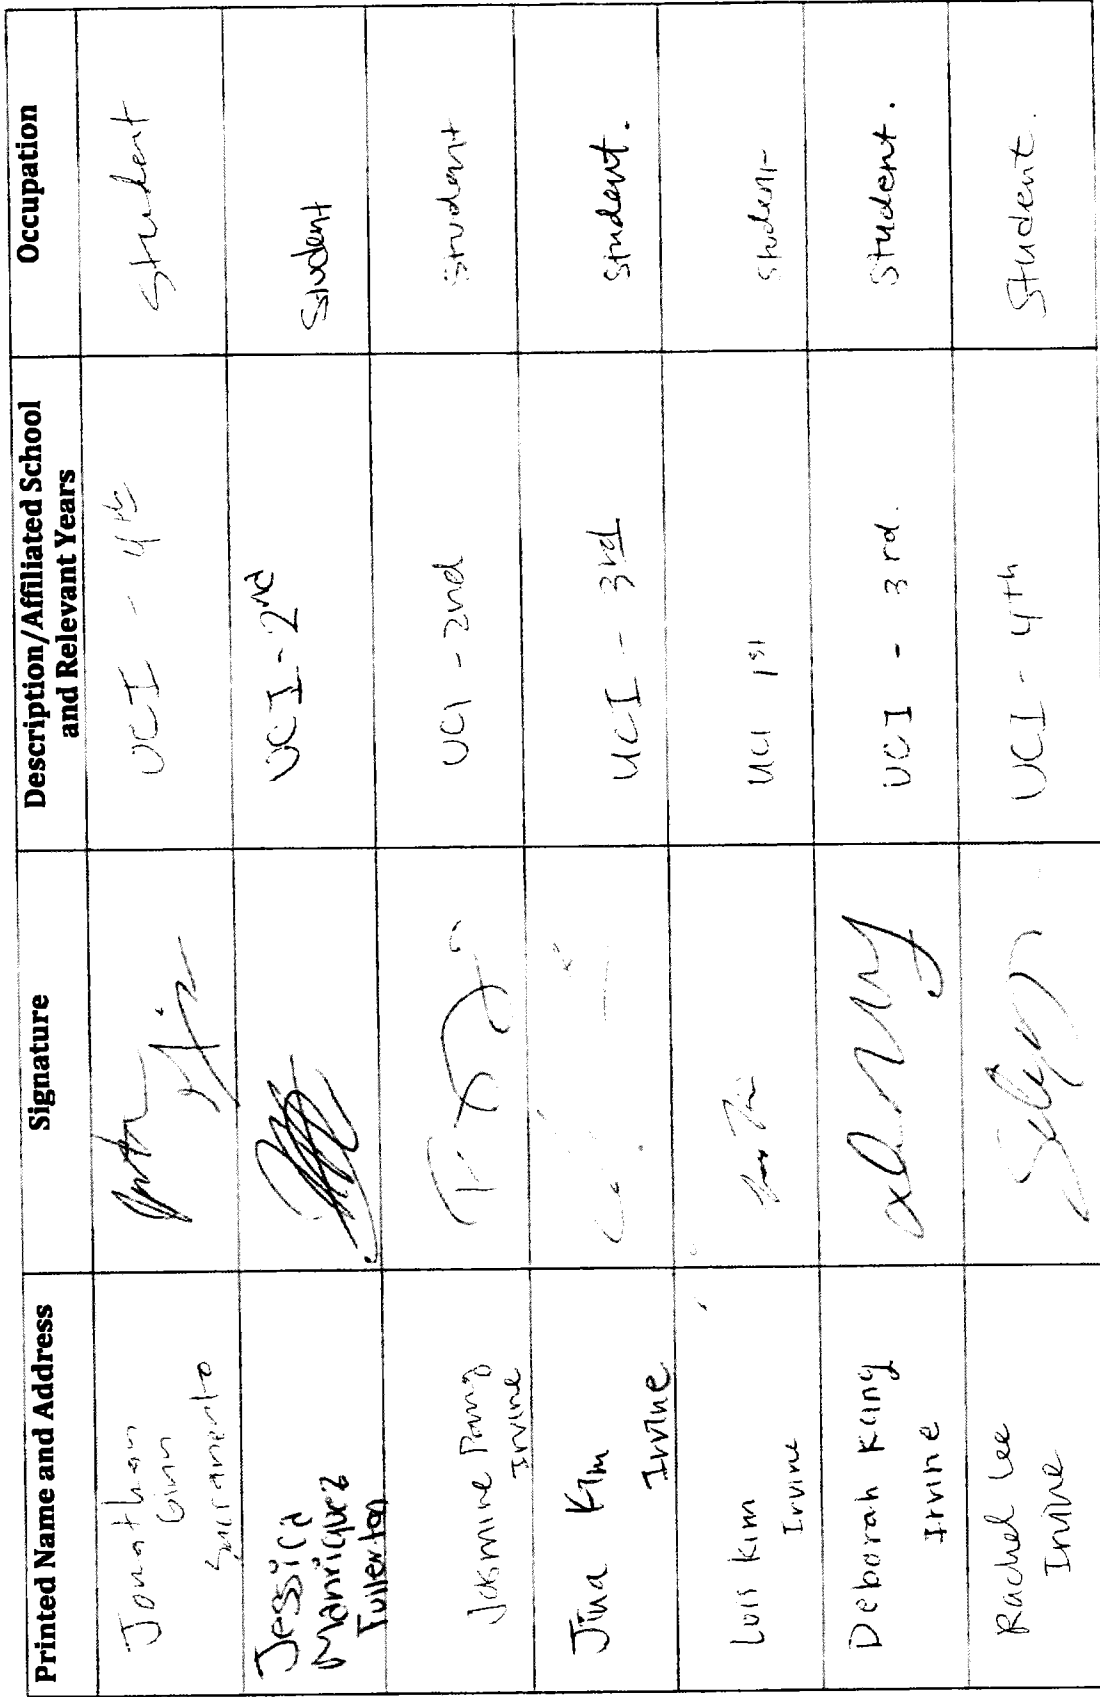 Printed Name and Address
Signature
Description/Affiliated School
and Relevant Years
Occupation
Jonathan
Ginn
Sacramento
UCI - 4th
Student
Jessica
Manriquez
Fullerton
UCI - 2nd
Student
Jasmine Pang
Irvine
UCI - 2nd
Student
Jina Kim
Irvine
UCI - 3rd
Student.
Lois Kim
Irvine
UCI 1st
Student
Deborah Kang
Irvine
UCI - 3rd.
Student.
Rachel Lee
Irvine
UCI - 4th
Student.